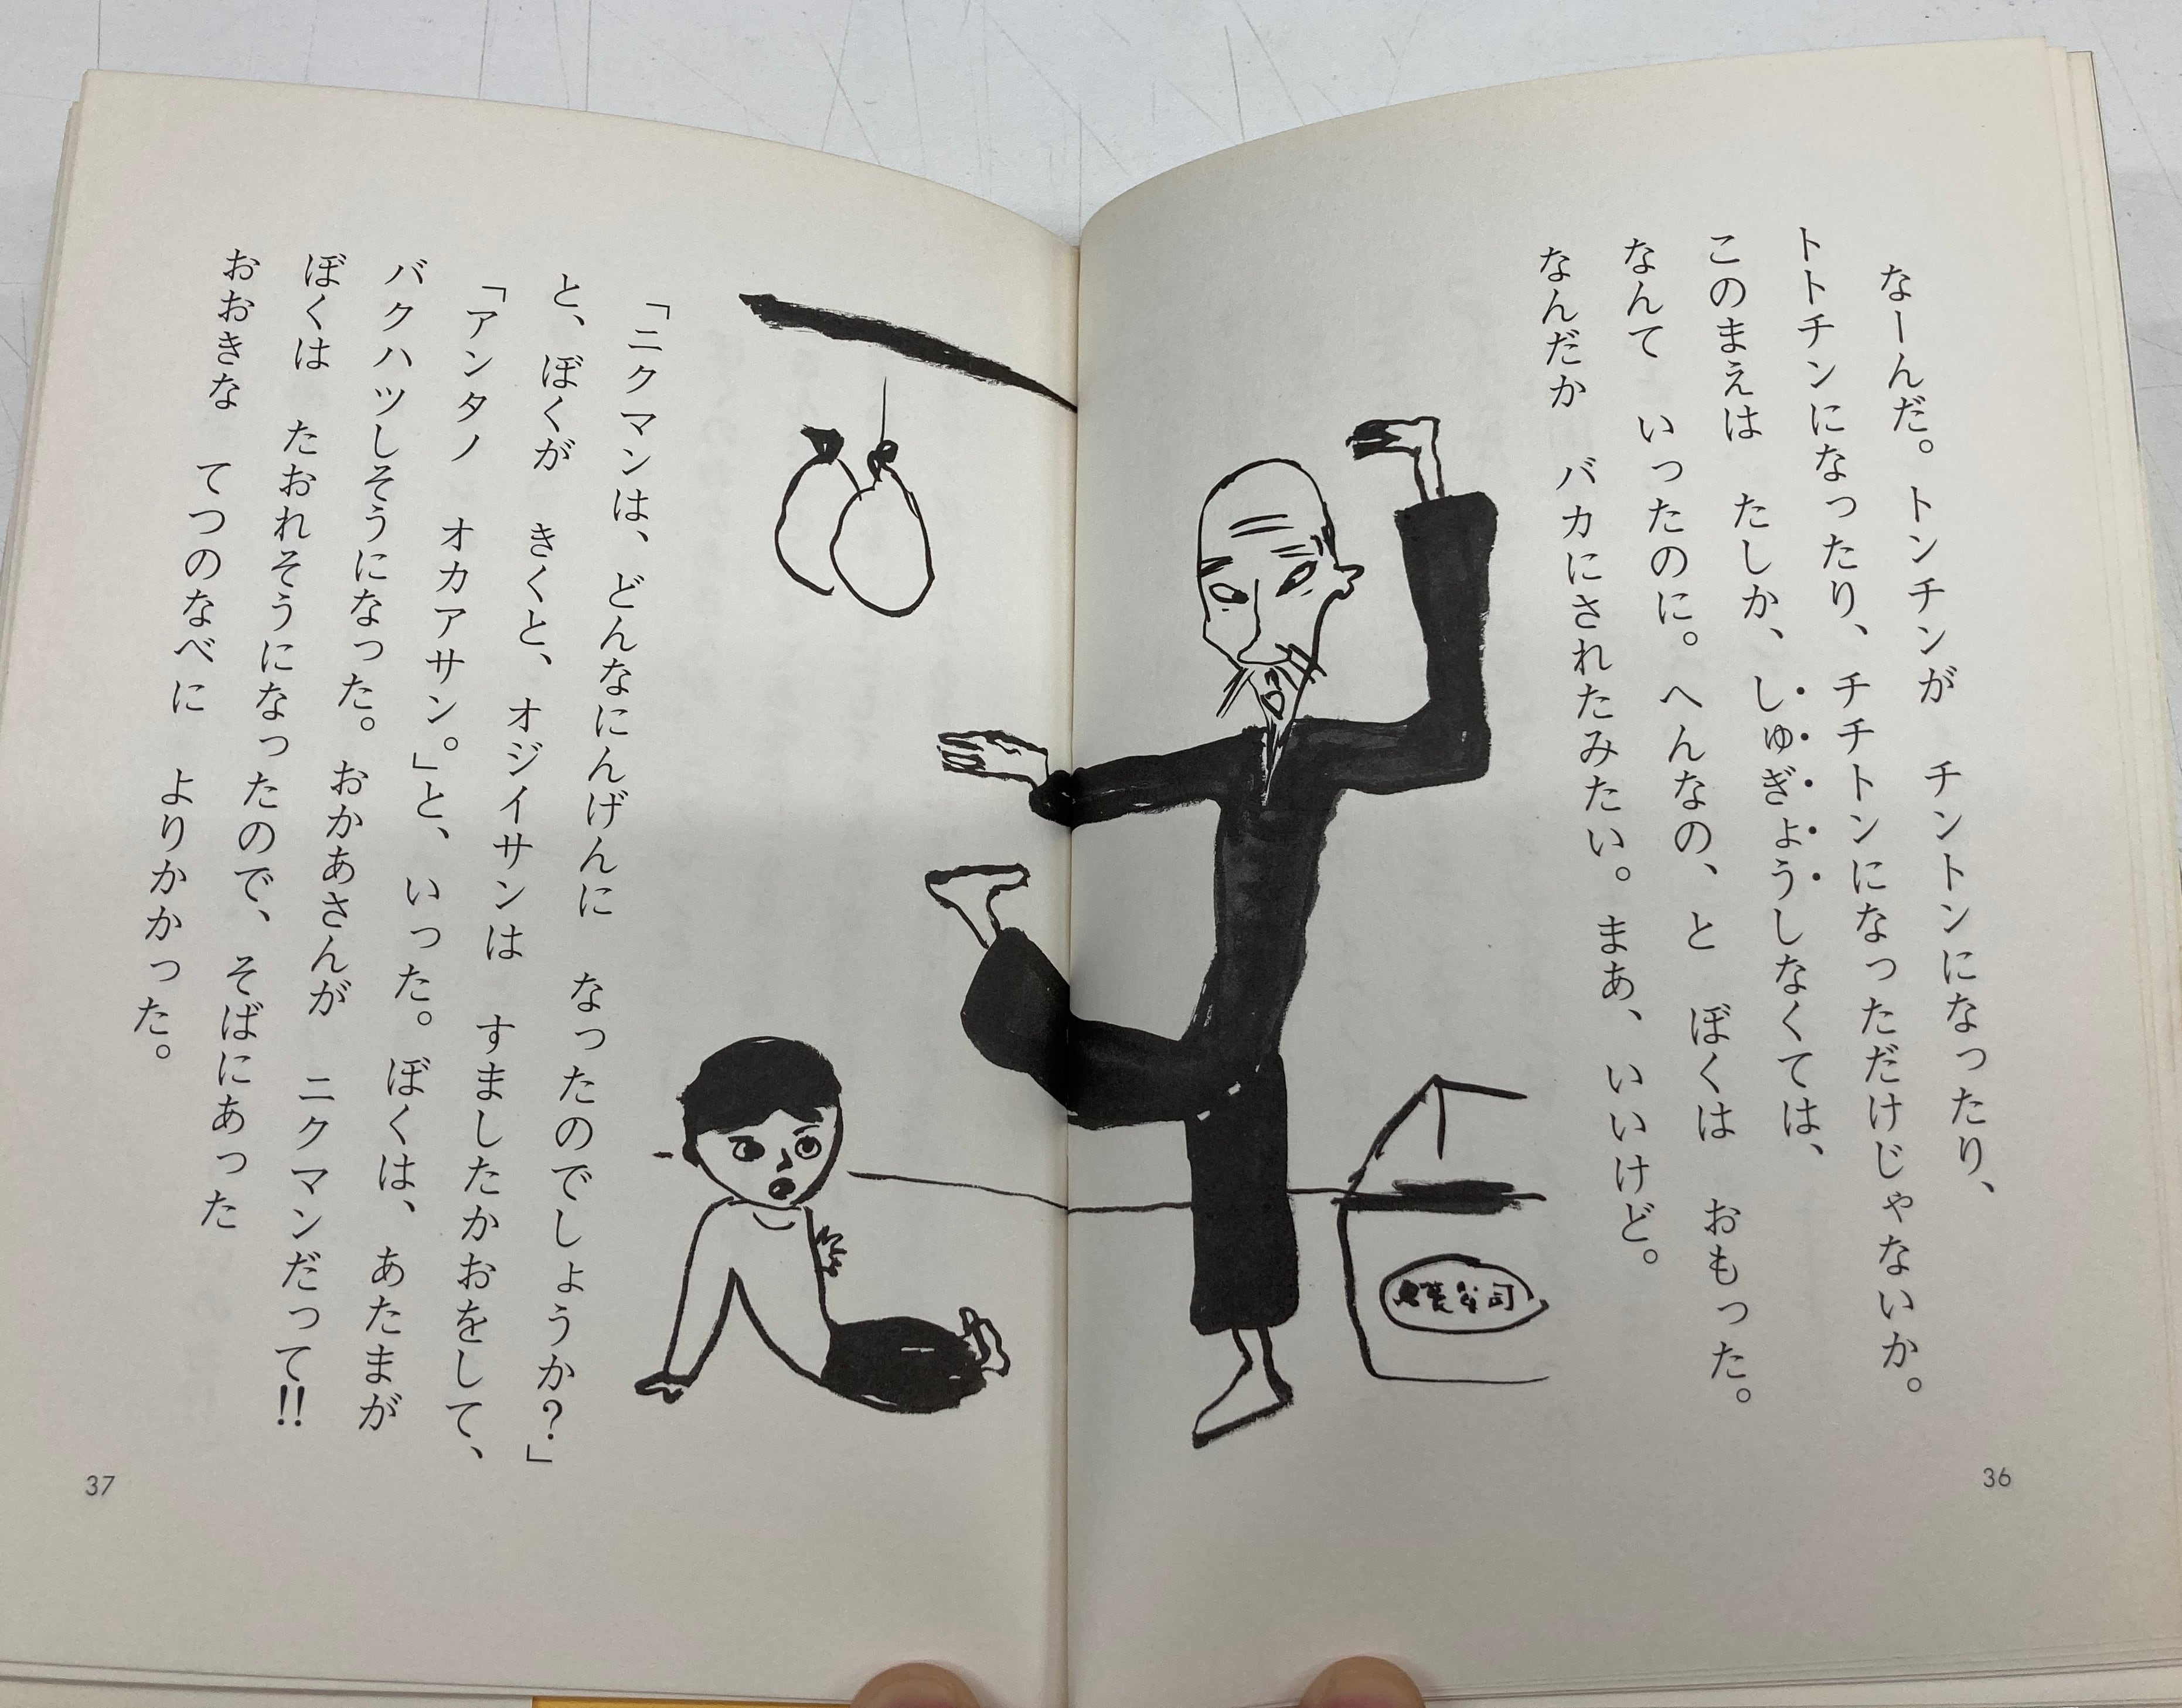 なーんだ。トンチンが　チントンになったり、
トトチンになったり、チチトンになっただけじゃないか。
このまえは　たしか、しゅぎょうしなくては、
なんて　いったのに。へんなの、と　ぼくは　おもった。
なんだか　バカにされたみたい。まあ、いいけど。
36
「ニクマンは、どんなにんげんに　なったのでしょうか？」
と、ぼくが　きくと、オジイサンは　すましたかおをして、
「アンタノ　オカアサン。」と、いった。ぼくは、あたまが
バクハツしそうになった。おかあさんが　ニクマンだって!!
ぼくは　たおれそうになったので、そばにあった
おおきな　てつのなべに　よりかかった。
37